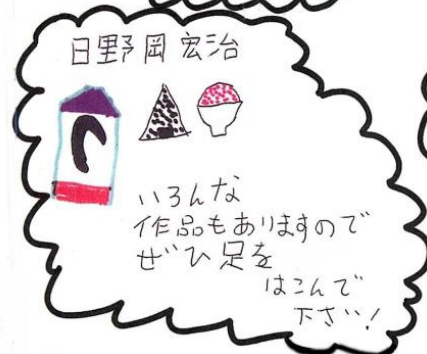 日野岡宏治
いろんな
作品もありますので
ぜひ足を
はこんで
下さい!